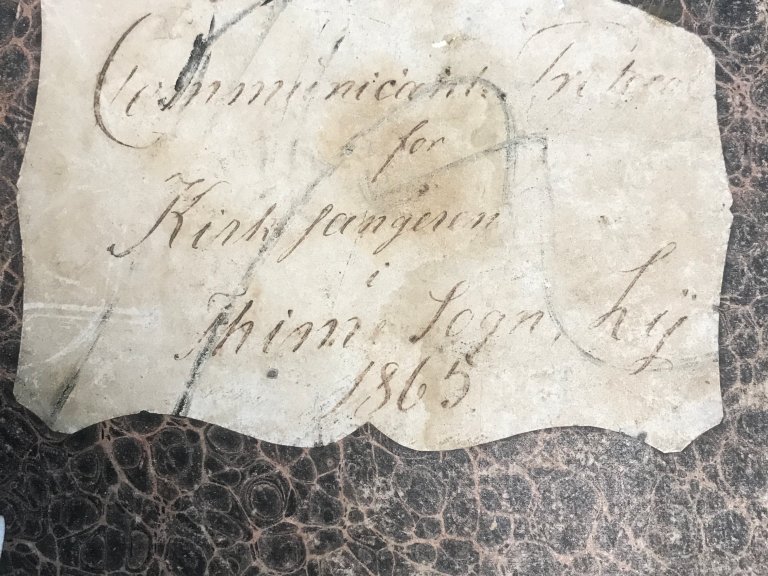 Communicant Protocol
for
Kirkesangeren
i
Thime Sogn, Lÿ
1865